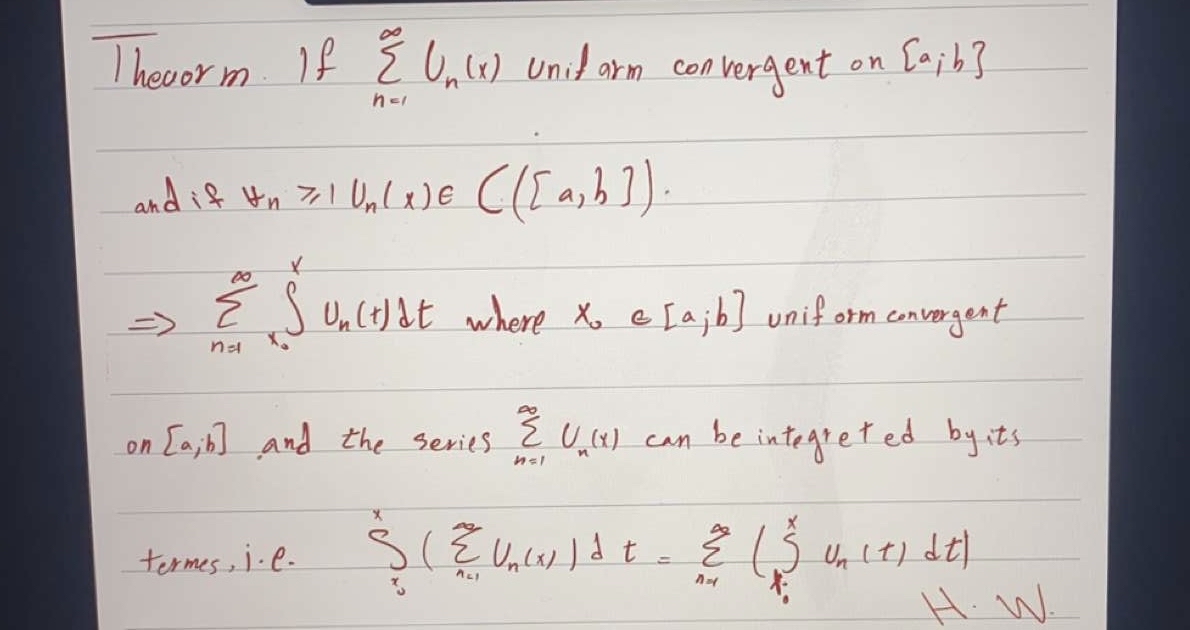 Theuorm. If ∞Σn=1 Un(x) uniform convergent on [a;b]
and if ∀n ≥ 1 Un(x) ∈ C([a,b]).
⇒ ∞Σn=1 x∫x₀ Un(t)dt where x₀ ∈ [a;b] uniform convergent
on [a;b] and the series ∞Σn=1 Un(x) can be integreted by its
termes, i.e. x∫x₀ (∞Σn=1 Un(x)) dt = ∞Σn=1 (x∫x₀ Un(t) dt)
H. W.